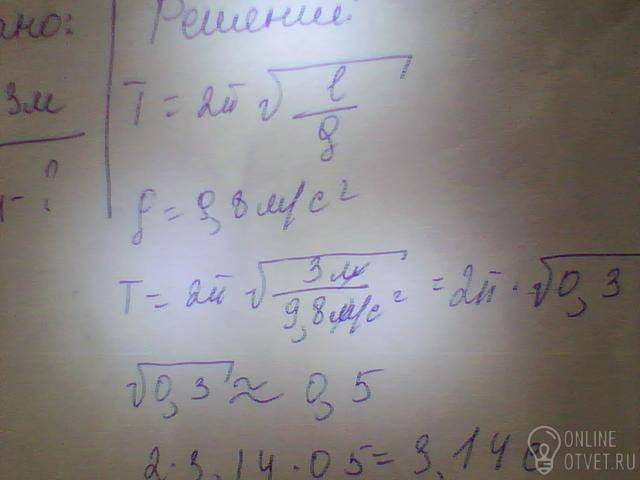 ано:
3м
Решение:
T = 2π √l/g
g = 9,8 м/с²
T = 2π √3м/9,8м/с² = 2π · √0,3
√0,3 ≈ 0,5
2·3,14·05 = 3,14с
ONLINE
OTVET.RU